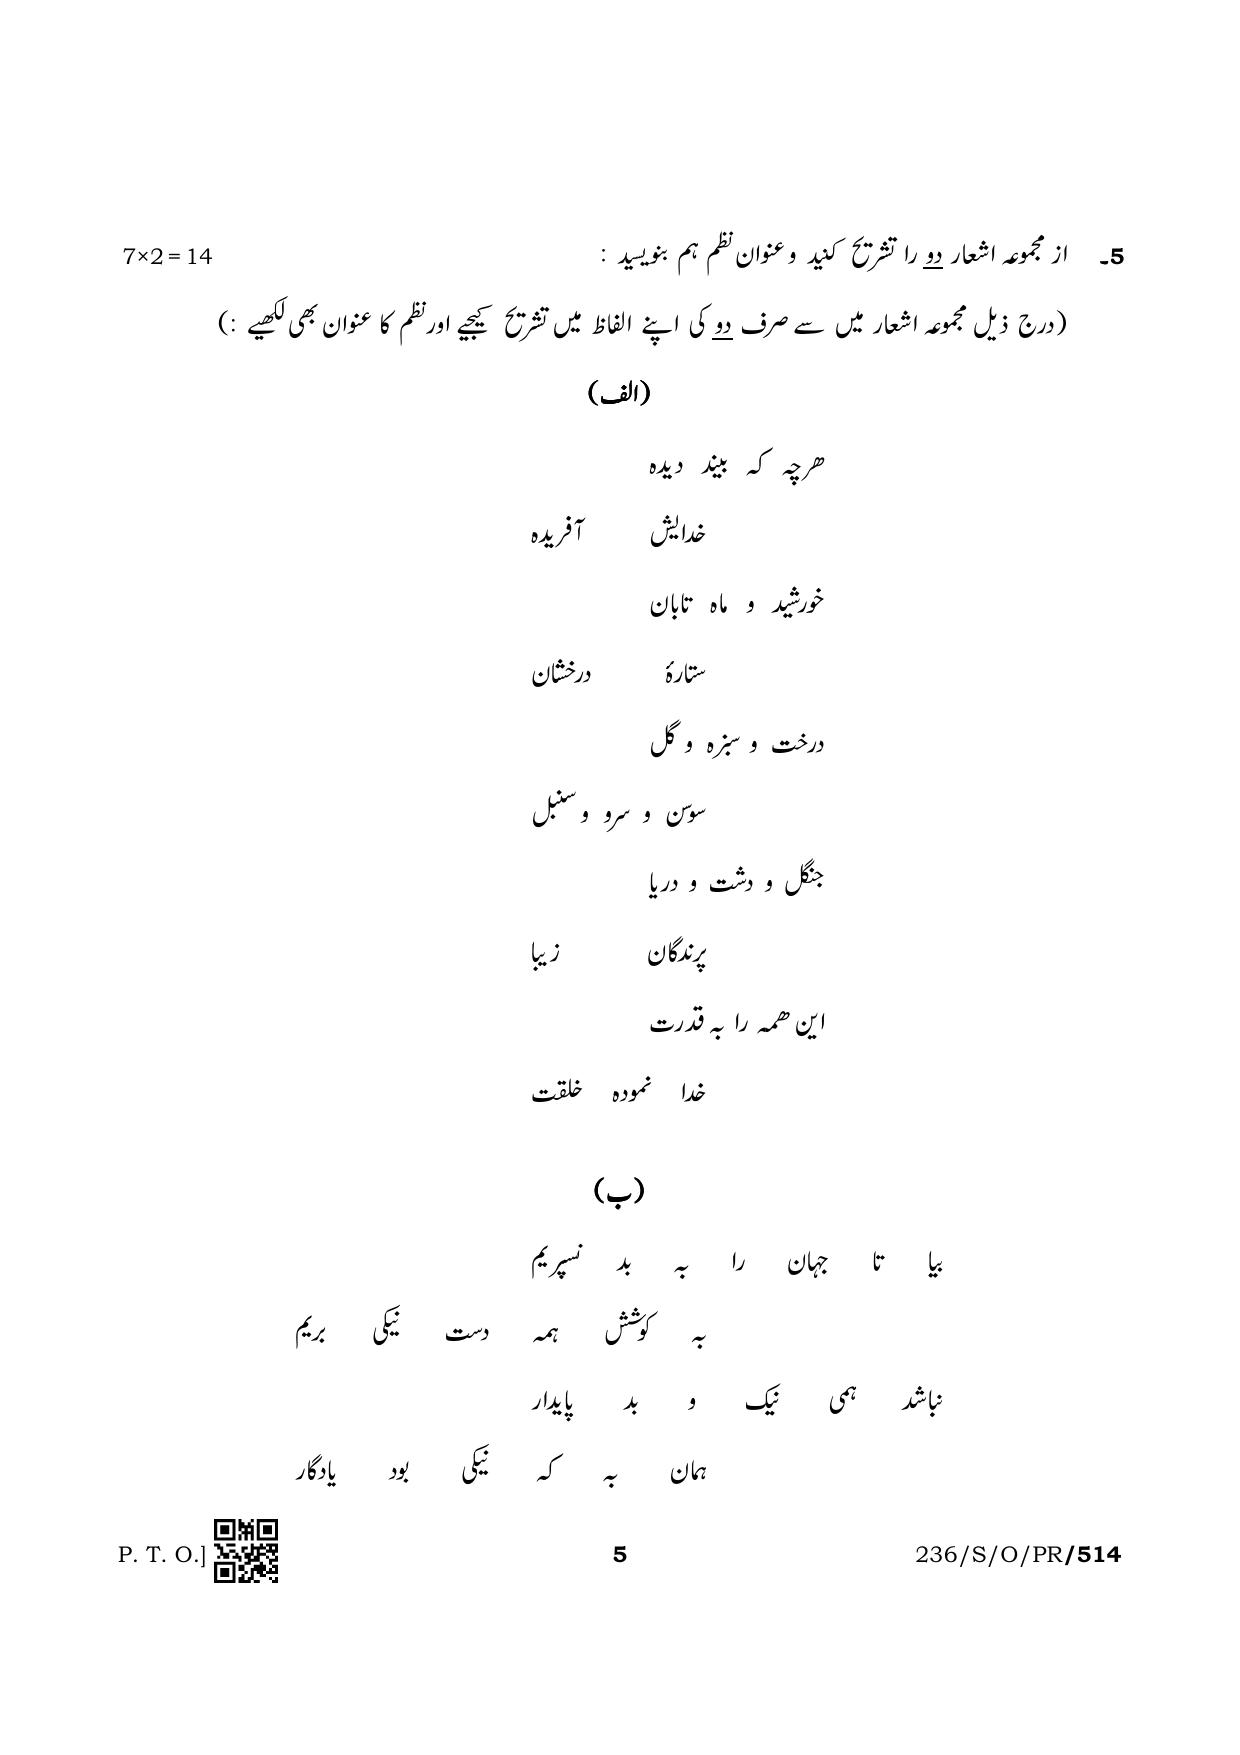 5۔ از مجموعہ اشعار دو را تشریح کنید و عنوان نظم ہم بنویسید : 7×2 = 14
(درج ذیل مجموعہ اشعار میں سے صرف دو کی اپنے الفاظ میں تشریح کیجیے اور نظم کا عنوان بھی لکھیے :)
(الف)
ھرچہ کہ بیند دیدہ
خدایش آفریدہ
خورشید و ماہ تابان
ستارۂ درخشان
درخت و سبزہ و گل
سوسن و سرو و سنبل
جنگل و دشت و دریا
پرندگان زیبا
این ھمہ را بہ قدرت
خدا نمودہ خلقت
(ب)
بیا تا جہان را بہ بد نسپریم
بہ کوشش ہمہ دست نیکی بریم
نباشد ہمی نیک و بد پایدار
ہمان بہ کہ نیکی بود یادگار
P. T. O.] 5 236/S/O/PR/514